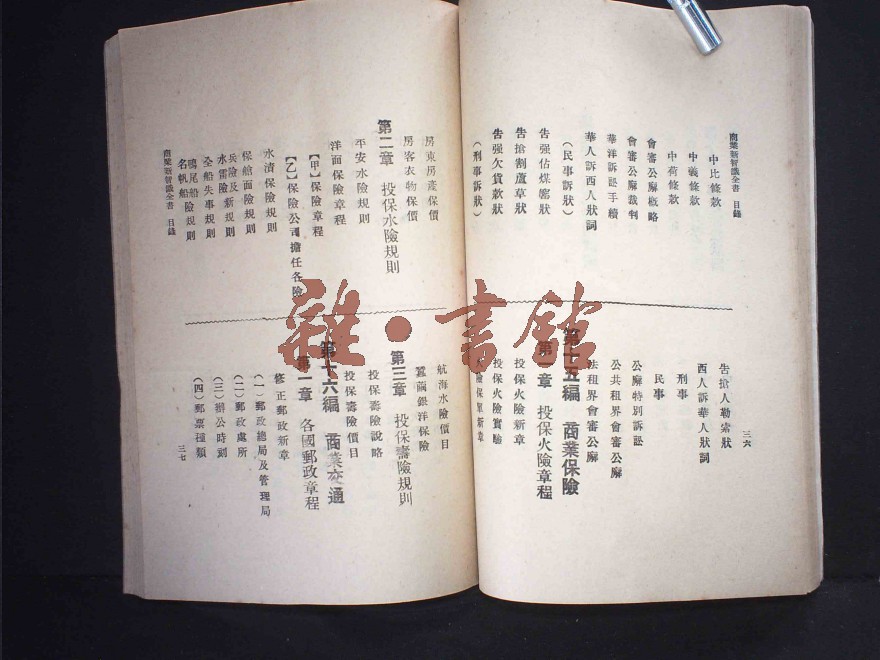 商業新智識全書 目錄
中比條款
中義條款
中荷條款
會審公廨概略
會審公廨裁判
華洋訴訟手續
華人訴西人狀詞
(民事訴狀)
告强佔煤廠狀
告搶割蘆草狀
告强欠貨款狀
(刑事訴狀)
三六
告搶人勒索狀
西人訴華人狀詞
刑事
民事
公廨特別訴訟
公共租界會審公廨
法租界會審公廨
第十五編 商業保險
第一章 投保火險章程
投保火險新章
投保火險實驗
火險保單新章
房東房產保價
房客衣物保價
第二章 投保水險規則
平安水險規則
洋面保險章程
【甲】保險章程
【乙】保險公司擔任各險
水漬保險規則
保艙面險規則
兵險及新規則
水雷險
全船失事規則
鴨尾船險規則
名帆船險規則
商業新智識全書 目錄
航海水險價目
蠶繭銀洋保險
第三章 投保壽險規則
投保壽險說略
投保壽險價目
第十六編 商業交通
第一章 各國郵政章程
修正郵政新章
(一)郵政總局及管理局
(二)郵政處所
(三)辦公時刻
(四)郵票種類
三七
雜·書館